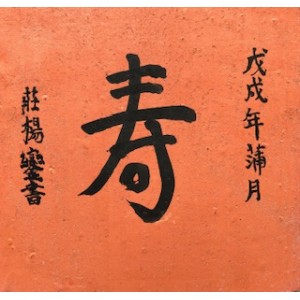 戊戌年蒲月
寿
莊楊㛟書